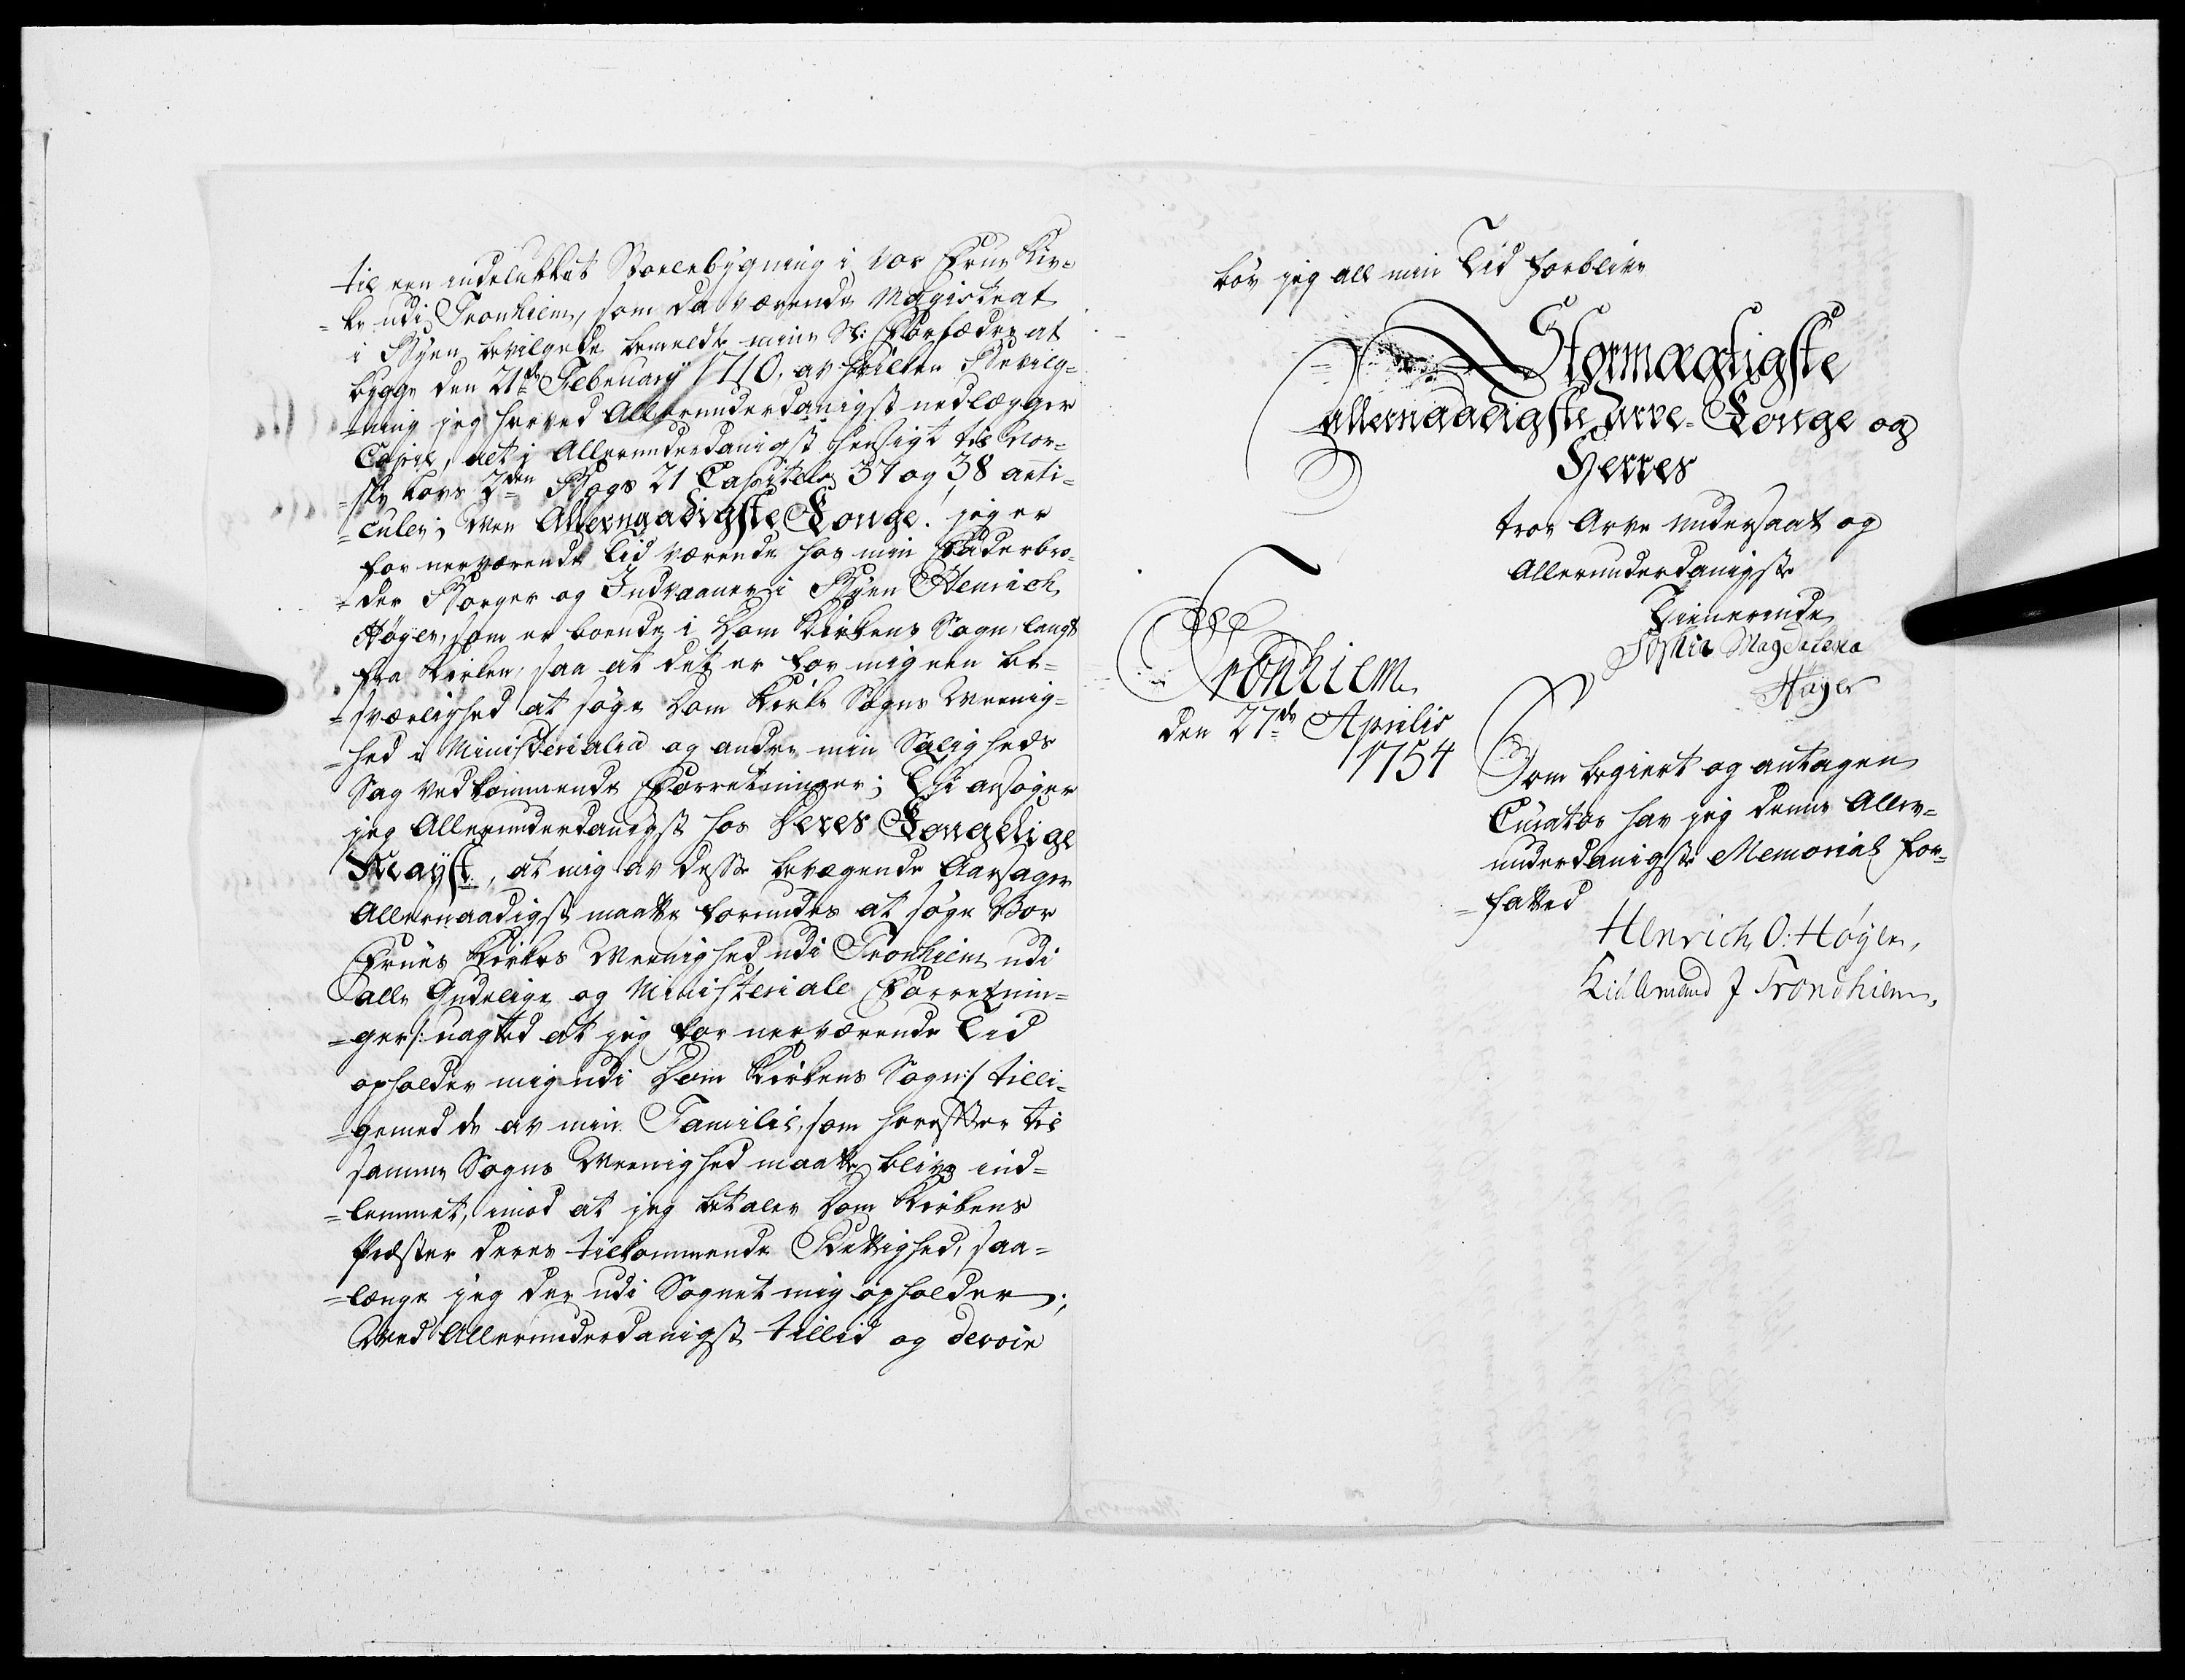 til een indelukket Stoelebygning i vor Frue Kir=
=ke udi Tronhiem, som da værende Magistrat
i Byen bevilgede bemeldte mine Sl: Forfædre at
bygge den 21de February 1710, av hvilken Bevilg=
=ning jeg herved Allerunderdanigst nedlægger
Copie, alt i Allerunderdanigst hensigt til Nor=
=ske Lovs 2den Bogs 21 Capitels 37 og 38 arti=
=culer; Men Allernaadigste Konge. jeg er
for nerværende Tid værende hos min Faderbro=
=der Borger og Indvaaner i Byen Henrich
Høyer, som er boende i Dom Kirkens Sogn, langt
fra Kirken, saa at det er for mig een be=
=sværlighed at søge Dom Kirke Sogns Meenig=
=hed i Ministerialia og andre min Saligheds
Sag vedkommende Forretninger; Thi ansøger
jeg Allerunderdanigst hos Deres Kongelige
Mayst., at mig av desse bevægende Aarsager
Allernaadigst maatte forundes at søge Vor
Frues Kirkes Meenighed udi Tronhiem udi
alle Gudelige og Ministeriale Forretnin=
=ger /: uagted at jeg for nerværende Tid
opholder mig udi Dom Kirkens Sogn :/ tilli=
=gemed de av min Familie, som herefter til
samme Sogns Meenighed maatte blive ind=
=lemmet, imod at jeg betaler Dom Kirkens
Præster deres tilkommende Rettighed, saa=
=længe jeg der udi Sognet mig opholder;
Med Allerunderdanigst tillid og devoir
bør jeg all min Tid forblive
Stormægtigste
allernaadigste Arve-Konge og
Herres
troe Arve undersaat og
Allerunderdanigste
Tienerinde
Sophia Magdalena
Høyer
Tronhiem
den 27de Aprilis
1754
Som begiert og antagen
Curator har jeg denne Aller=
underdanigste Memorial for=
=fatted
Henrich O: Høyer,
Kiøbmand J Trondhiem,